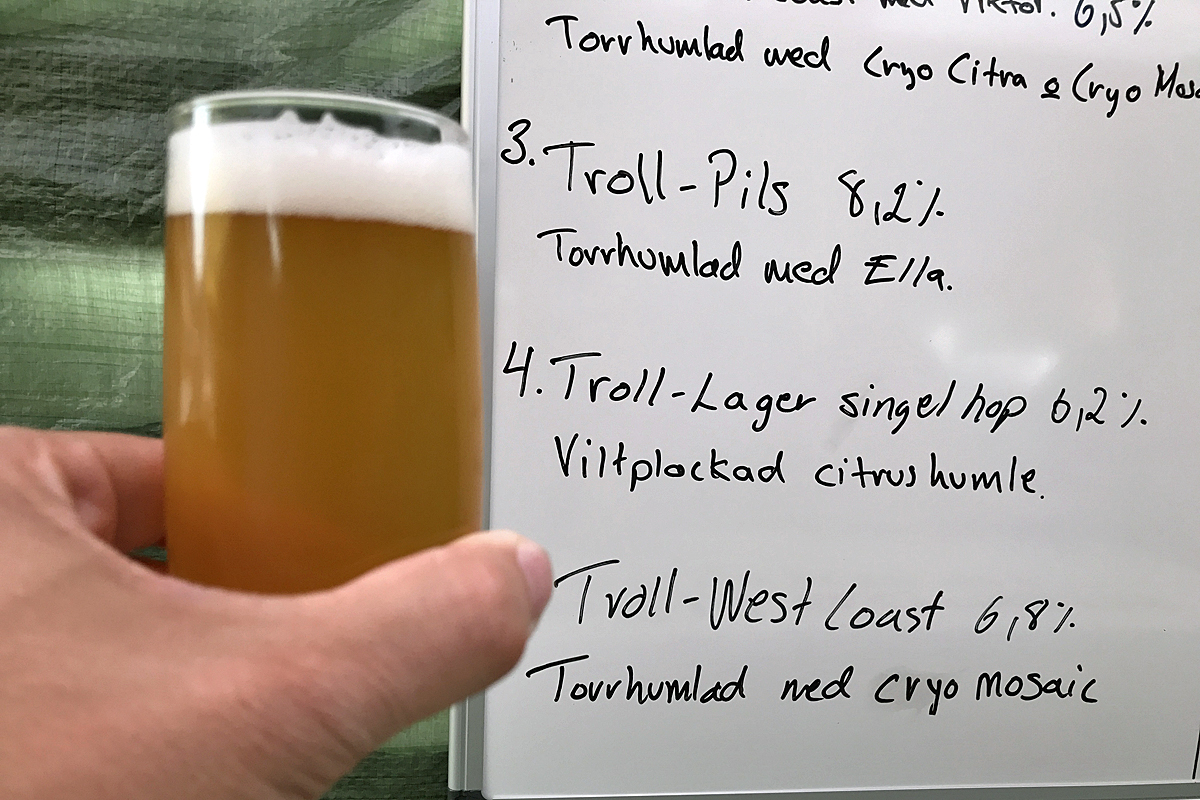 med Viktor. 6,5%
Torrhumlad med Cryo Citra o Cryo
3. Troll-Pils 8,2%
Torrhumlad med Ella.
4. Troll-Lager singel hop 6,2%.
Viltplockad citrushumle.
Troll-West Coast 6,8%
Torrhumlad med cryo mosaic